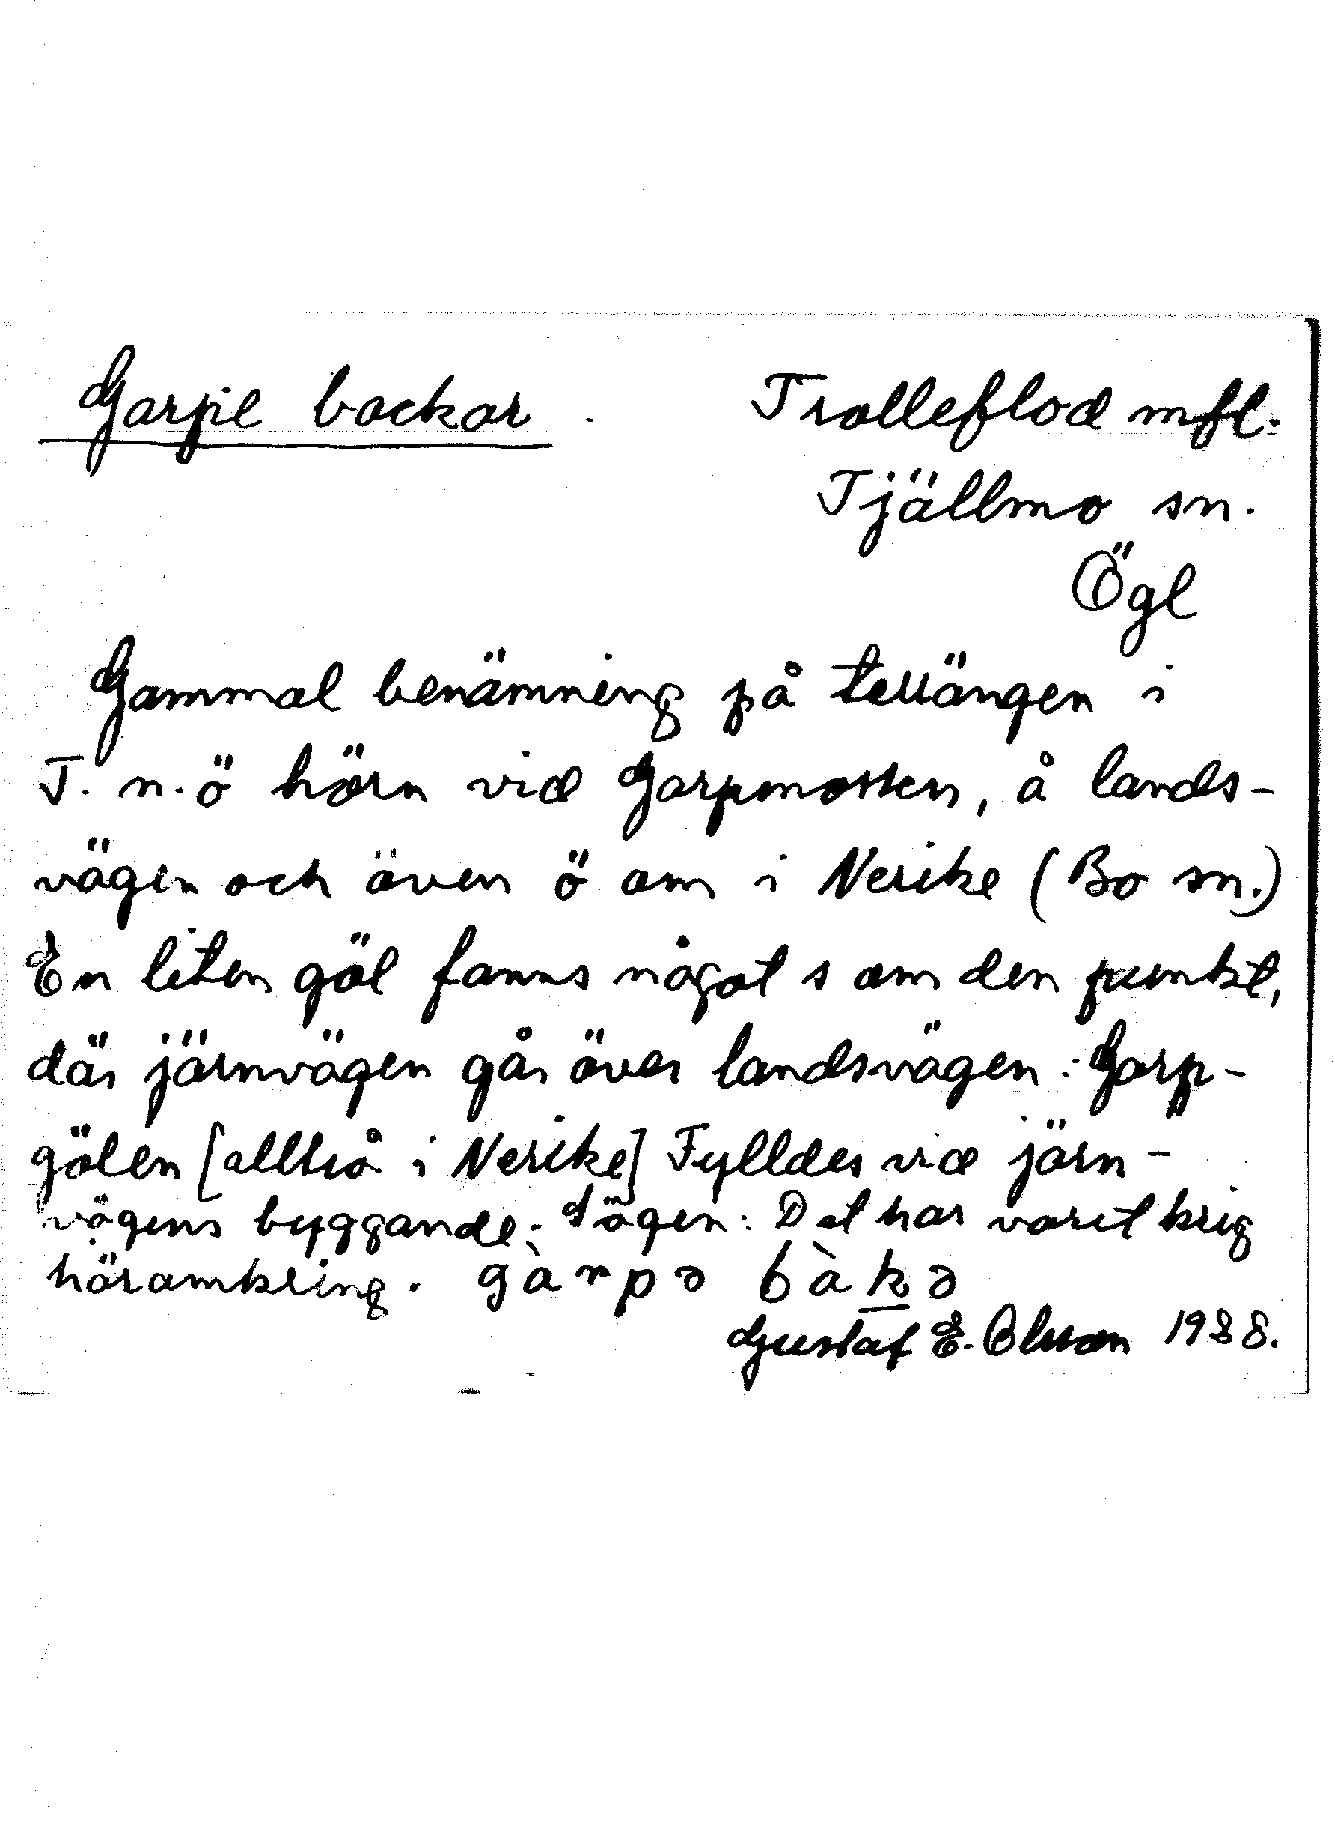 Garpe backar. Trolleflod mfl.
Tjällmo sn.
Ögl
Gammal benämning på terrängen i
T. n.ö hörn vid Garpmossen, å lands-
vägen och även ö om i Nerike (Bo sn.)
En liten göl fanns något s om den punkt,
där järnvägen går över landsvägen: Garp-
gölen [alltså i Nerike] Fylldes vid järn-
vägens byggande. Sägen: Det har varit krig
häromkring. gàrpə bàkə
Gustaf E. Olsson 1988.